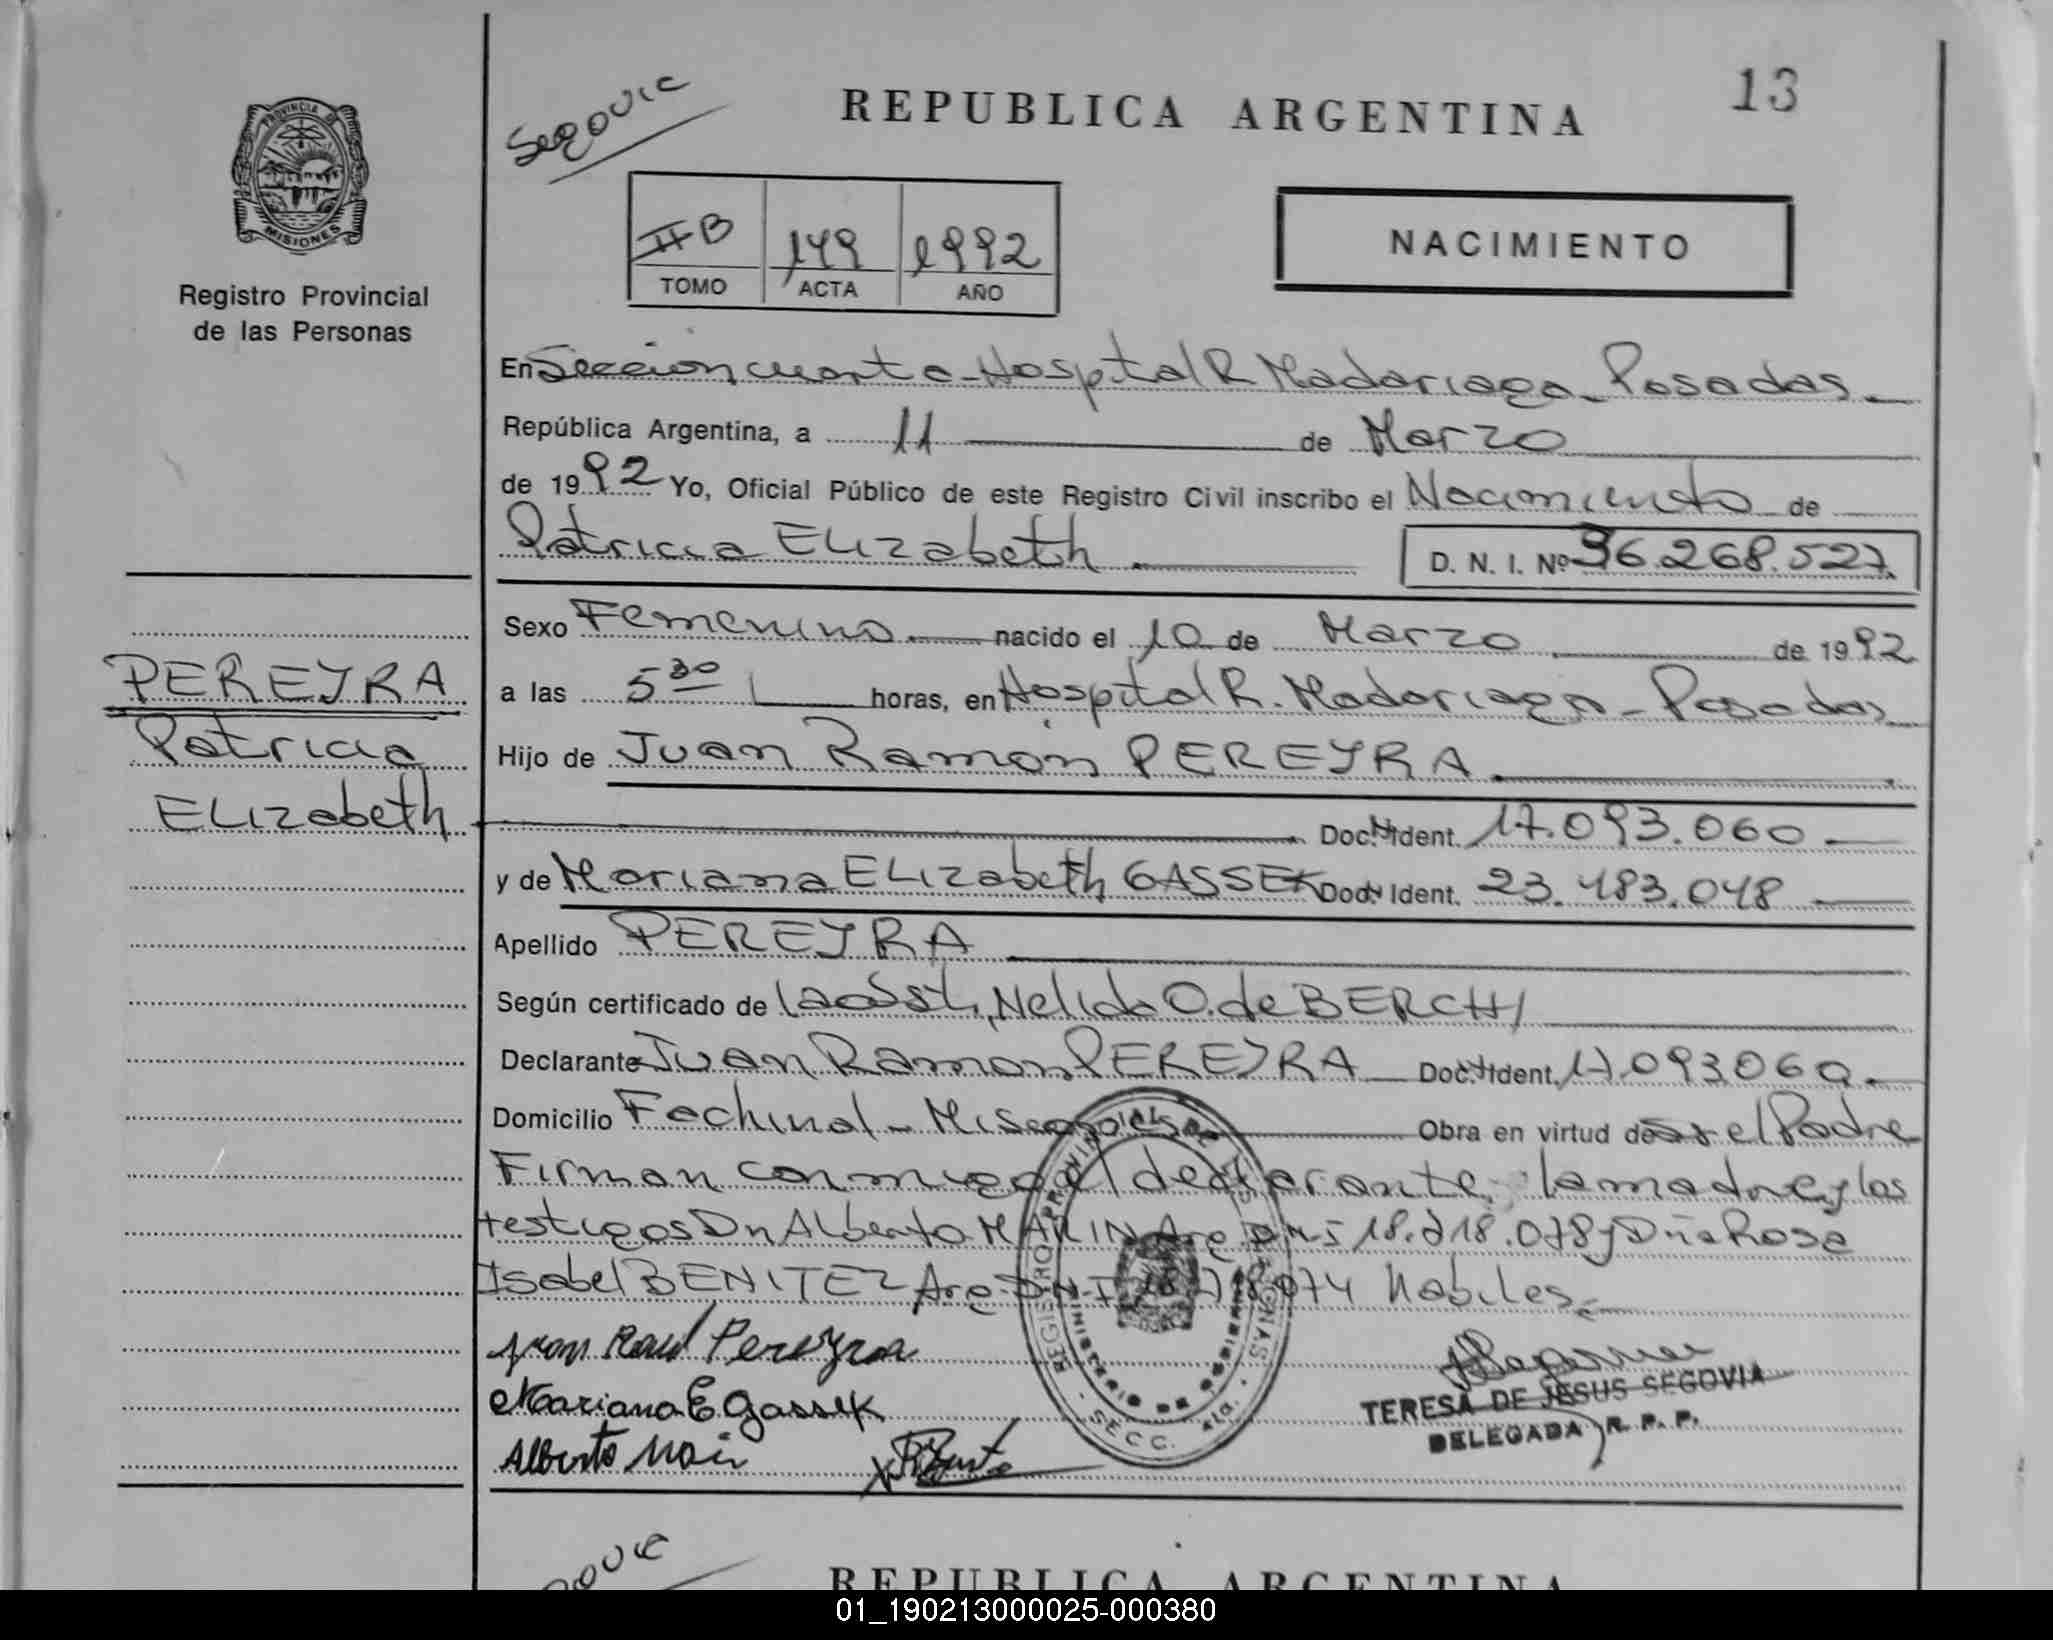 Segovia
REPUBLICA ARGENTINA
13
PROVINCIA DE
MISIONES
Registro Provincial
de las Personas
II B
149
1992
TOMO
ACTA
AÑO
NACIMIENTO
En Sección cuarta - Hospital R Madariaga - Posadas
República Argentina, a 11 de Marzo
de 1992 Yo, Oficial Público de este Registro Civil inscribo el Nacimiento de
Patricia Elizabeth
D. N. I. Nº 36.268.527
Sexo Femenino nacido el 10 de Marzo de 1992
a las 5 30 horas, en Hospital R. Madariaga - Posadas
Hijo de Juan Ramón PEREYRA
Doc. N Ident. 17.093.060
y de Mariana Elizabeth GASSEK Doc. N Ident. 23.183.048
Apellido PEREYRA
Según certificado de Nelida O. de BERCHI
Declarante Juan Ramon PEREYRA Doc. Ident. 17.093060
Domicilio Fachinal - Misiones Obra en virtud de ser el Padre
Firman conmigo el declarante, la madre y los
testigos Dn Alberto Arg DNI 18.718.078 y Dña Rosa
Isabel BENITEZ Arg. D.N.I 074 habiles
PEREYRA
Patricia
Elizabeth
Juan Pereyra
Mariana E Gassek
Alberto
REGISTRO PROVINCIAL DE LAS PERSONAS
MINISTERIO DE GOBIERNO
SECC. 4ta.
TERESA DE JESUS SEGOVIA
DELEGADA R. P. P.
REPUBLICA ARGENTINA
01_190213000025-000380